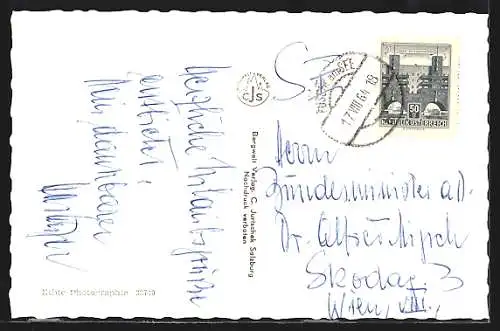 Herzliche Urlaubsgrüße
entbietet
Ihr dankbarer
CJS
Bergwelt Verlag: C. Jurischek Salzburg
Nachdruck verboten
Echte Photographie
17.VIII.64-18
50
REPUBLIK ÖSTERREICH
Herrn
Bundesminister a.D.
Dr. Alfred
Skodag. 3
Wien, VIII.,